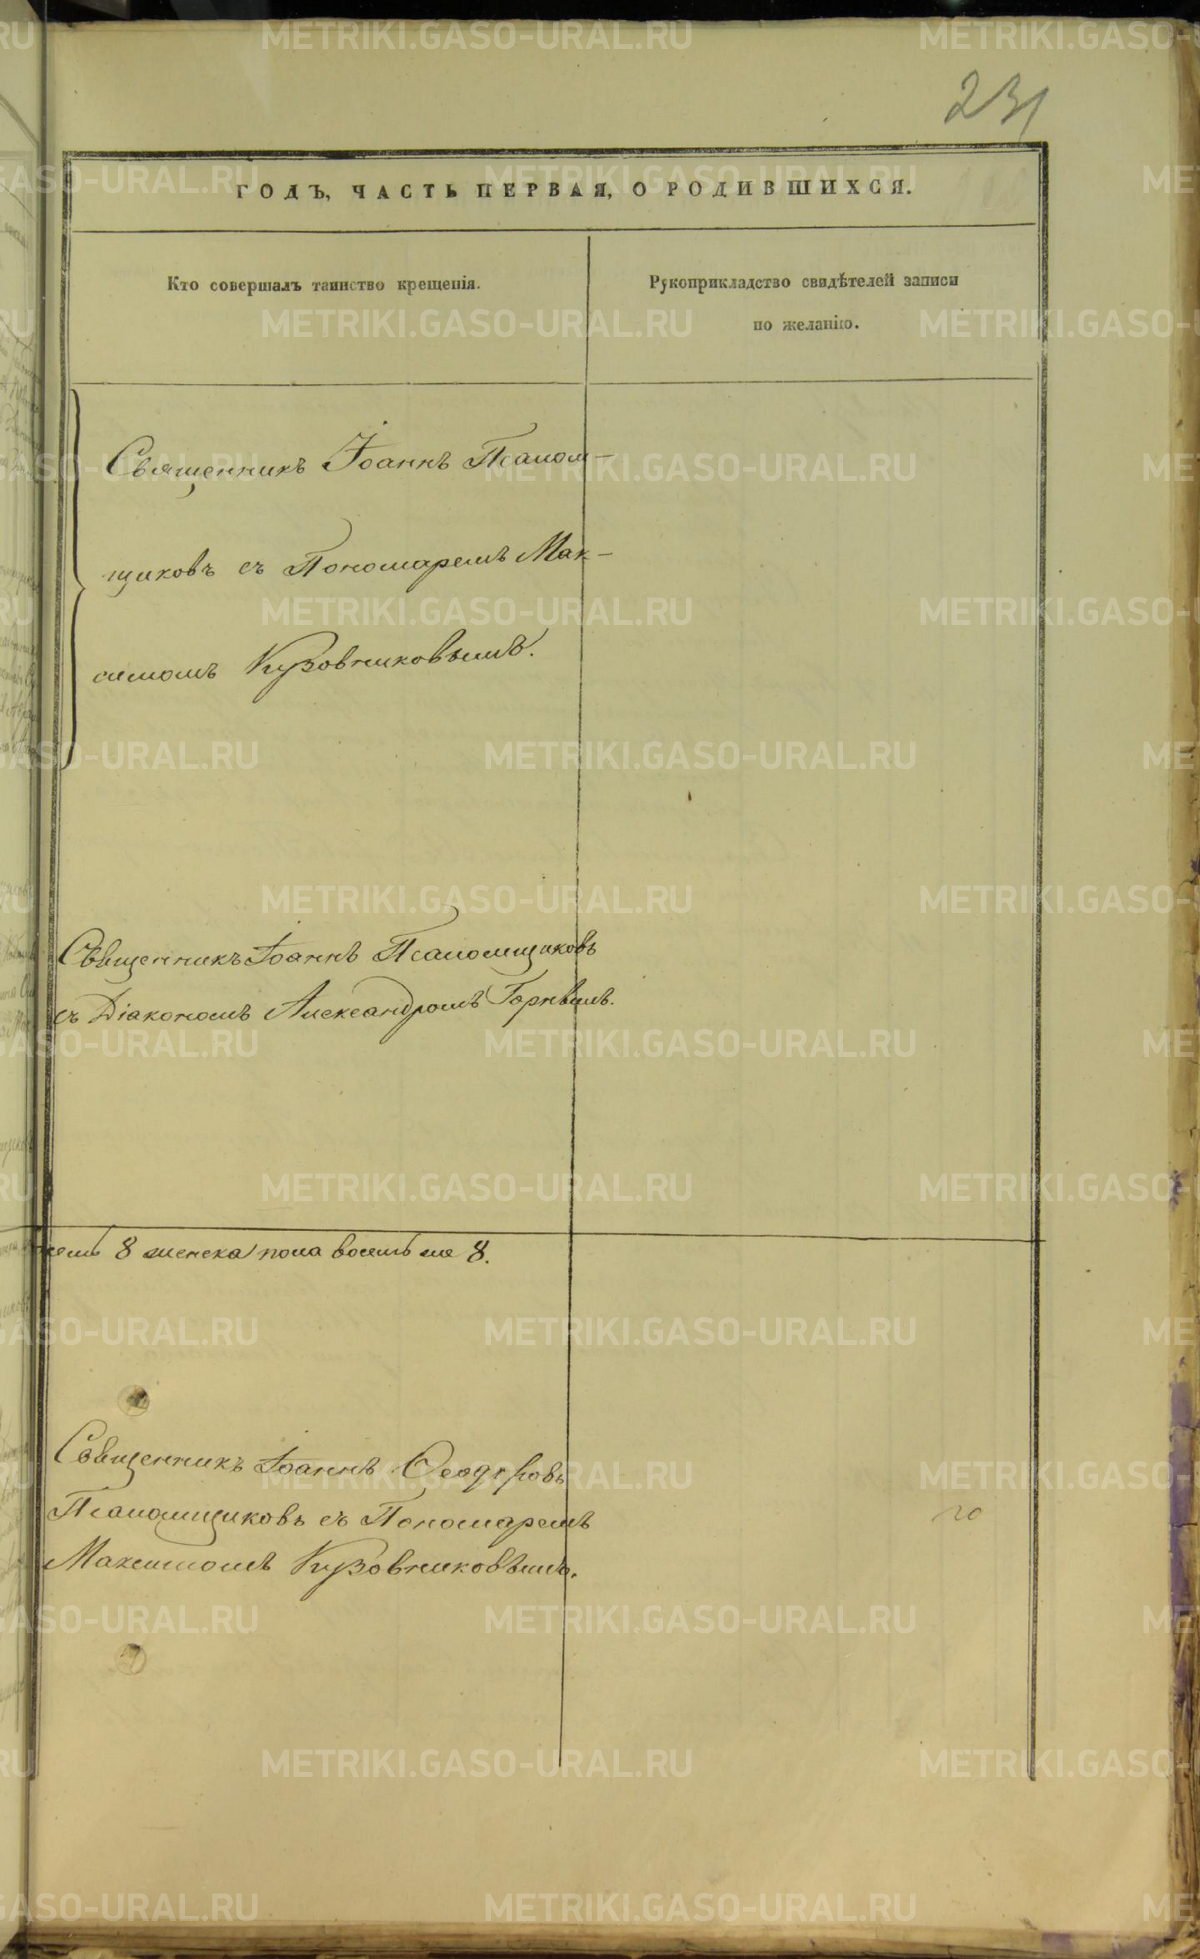 231
ГОДЪ, ЧАСТЬ ПЕРВАЯ, О РОДИВШИХСЯ.
Кто совершалъ таинство крещенія.
Рукоприкладство свидѣтелей записи
по желанію.
Священникъ Іоаннъ Псалом-
щиковъ съ Пономаремъ Мак-
симомъ Кузовниковымъ.
Священникъ Іоаннъ Псаломщиковъ
съ Діакономъ Александромъ
8 женска пола восемь же 8.
Священникъ Іоаннъ Ѳеодоровъ
Псаломщиковъ съ Пономаремъ
Максимомъ Кузовниковымъ.
METRIKI.GASO-URAL.RU